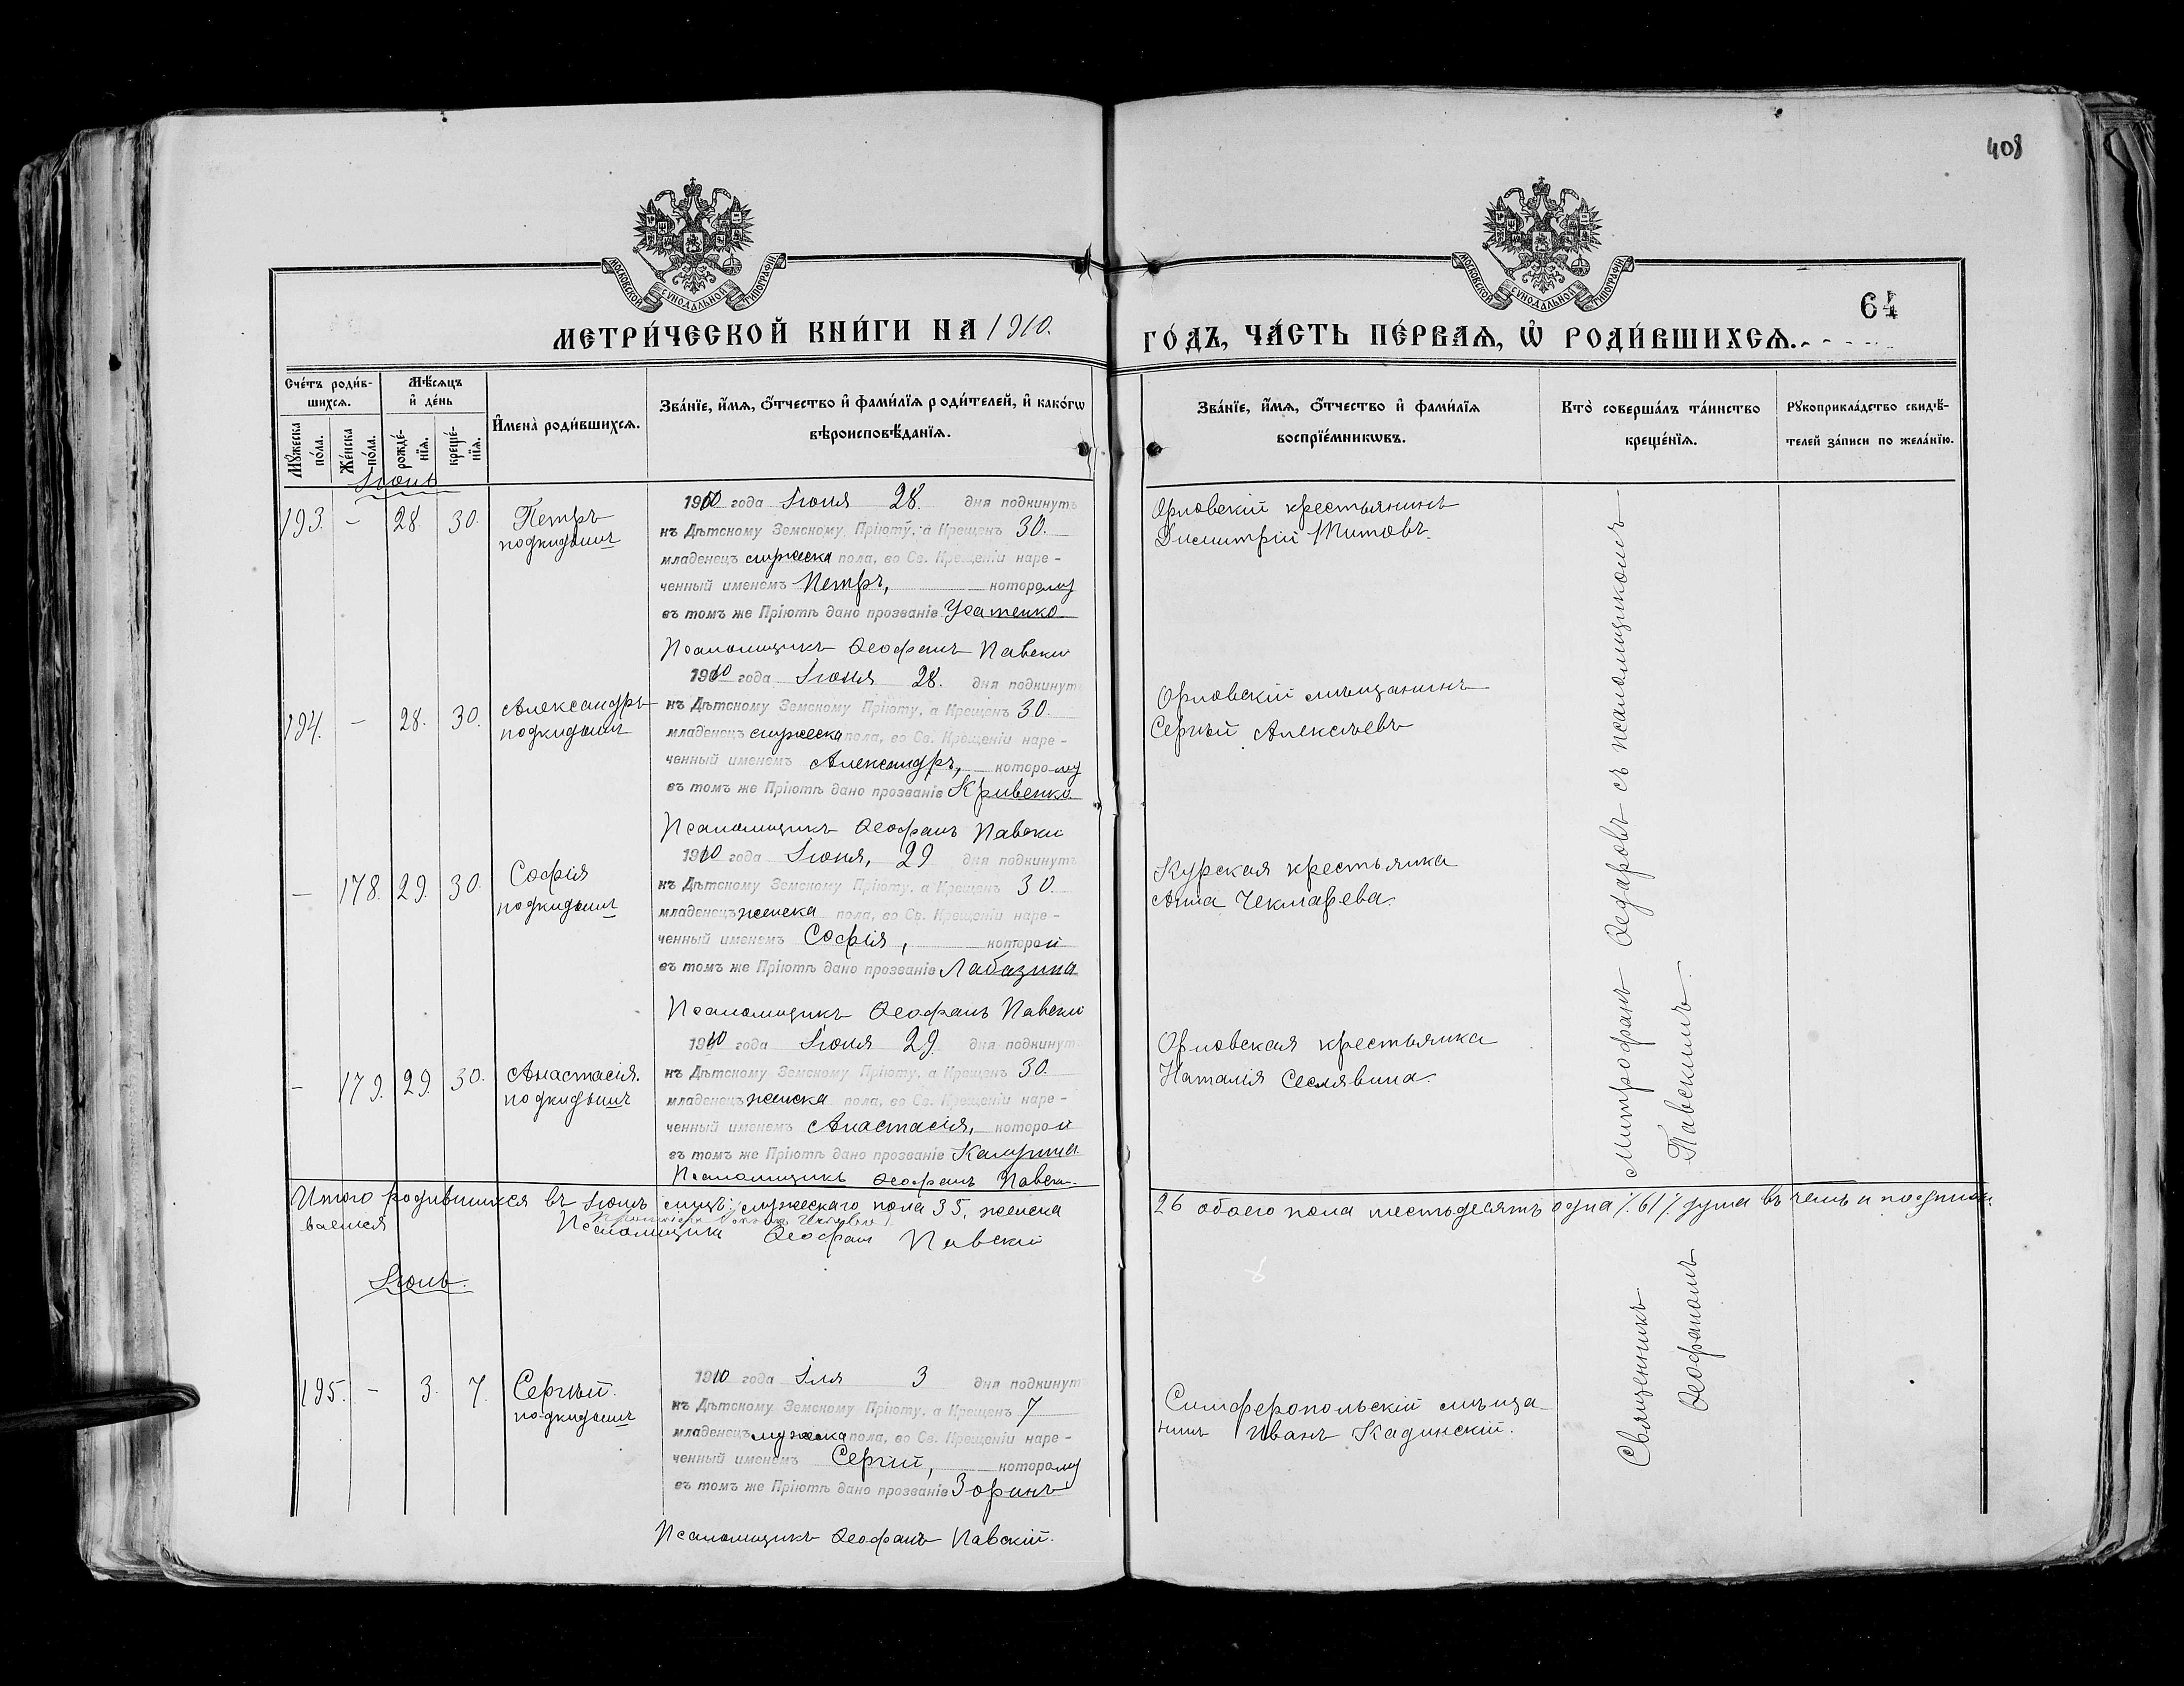 408
МОСКОВСКОЙ СѴНОДАЛЬНОЙ ТИПОГРАФІИ
МОСКОВСКОЙ СѴНОДАЛЬНОЙ ТИПОГРАФІИ
64
МЕТРИ́ЧЕСКОЙ КНИ́ГИ НА 1910.
ГО́ДЪ, ЧА́СТЬ ПЕ́РВАЯ, Ѡ РОДИ́ВШИХСЯ.
Сче́тъ роди́в-
шихся.
Мꙋ́жеска по́ла.
Же́нска по́ла.
Мѣ́сяцъ
и҆ де́нь
рожде́-
нїя.
креще́-
нїя.
И҆мена̀ роди́вшихся.
Зва́нїе, и҆́мя, ѻ҆́тчество и҆ фами́лїя роди́телей, и҆ како́гѡ
вѣроисповѣ́данїя.
Зва́нїе, и҆́мя, ѻ҆́тчество и҆ фами́лїя
воспрїе́мникѡвъ.
Кто̀ соверша́лъ та́инство
креще́нїя.
Рꙋкоприкла́дство свидѣ́-
телей за́писи по жела́нїю.
Іюнь
193. – 28. 30. Петръ
подкидышъ
1910 года Іюня 28. дня подкинутъ
къ Дѣтскому Земскому Пріюту, а Крещенъ 30.
младенецъ мужеска пола, во Св. Крещеніи наре-
ченный именемъ Петръ, которому
въ томъ же Пріютѣ дано прозваніе Усатенко
Псаломщикъ Ѳеофанъ Павскій
Орловскій крестьянинъ
Димитрій Титовъ.
194. – 28. 30. Александръ
подкидышъ
1910 года Іюня 28. дня подкинутъ
къ Дѣтскому Земскому Пріюту, а Крещенъ 30.
младенецъ мужеска пола, во Св. Крещеніи наре-
ченный именемъ Александръ, которому
въ томъ же Пріютѣ дано прозваніе Кривенко
Псаломщикъ Ѳеофанъ Павскій
Орловскій мѣщанинъ
Сергѣй Алексѣевъ
– 178. 29. 30. Софія
подкидышъ
1910 года Іюня, 29 дня подкинутъ
къ Дѣтскому Земскому Пріюту, а Крещенъ 30.
младенецъ женска пола, во Св. Крещеніи наре-
ченный именемъ Софія, которой
въ томъ же Пріютѣ дано прозваніе Лабазина
Псаломщикъ Ѳеофанъ Павскій
Курская крестьянка
Анна Чекмарева.
– 179. 29. 30. Анастасія.
подкидышъ
1910 года Іюня 29. дня подкинутъ
къ Дѣтскому Земскому Пріюту, а Крещенъ 30.
младенецъ женска пола, во Св. Крещеніи наре-
ченный именемъ Анастасія, которой
въ томъ же Пріютѣ дано прозваніе
Псаломщикъ Ѳеофанъ Павскій
Орловская крестьянка
Наталія Селявина.
Итого родившихся въ Іюнѣ мцѣ: мужескаго пола 35, женска
26 обоего пола шестьдесятъ одна /61/ душа въ чемъ и подписы
ваемся
Псаломщикъ Ѳеофанъ Павскій
Іюль.
195. – 3. 7. Сергѣй.
подкидышъ
1910 года Іюля 3 дня подкинутъ
къ Дѣтскому Земскому Пріюту, а Крещенъ 7
младенецъ мужеска пола, во Св. Крещеніи наре-
ченный именемъ Сергій, которому
въ томъ же Пріютѣ дано прозваніе Зоринъ
Псаломщикъ Ѳеофанъ Павскій.
Симферопольскій мѣща-
нинъ Иванъ Кадинскій.
Священникъ Митрофанъ Ѳедоровъ съ псаломщикомъ
Ѳеофаномъ Павскимъ.